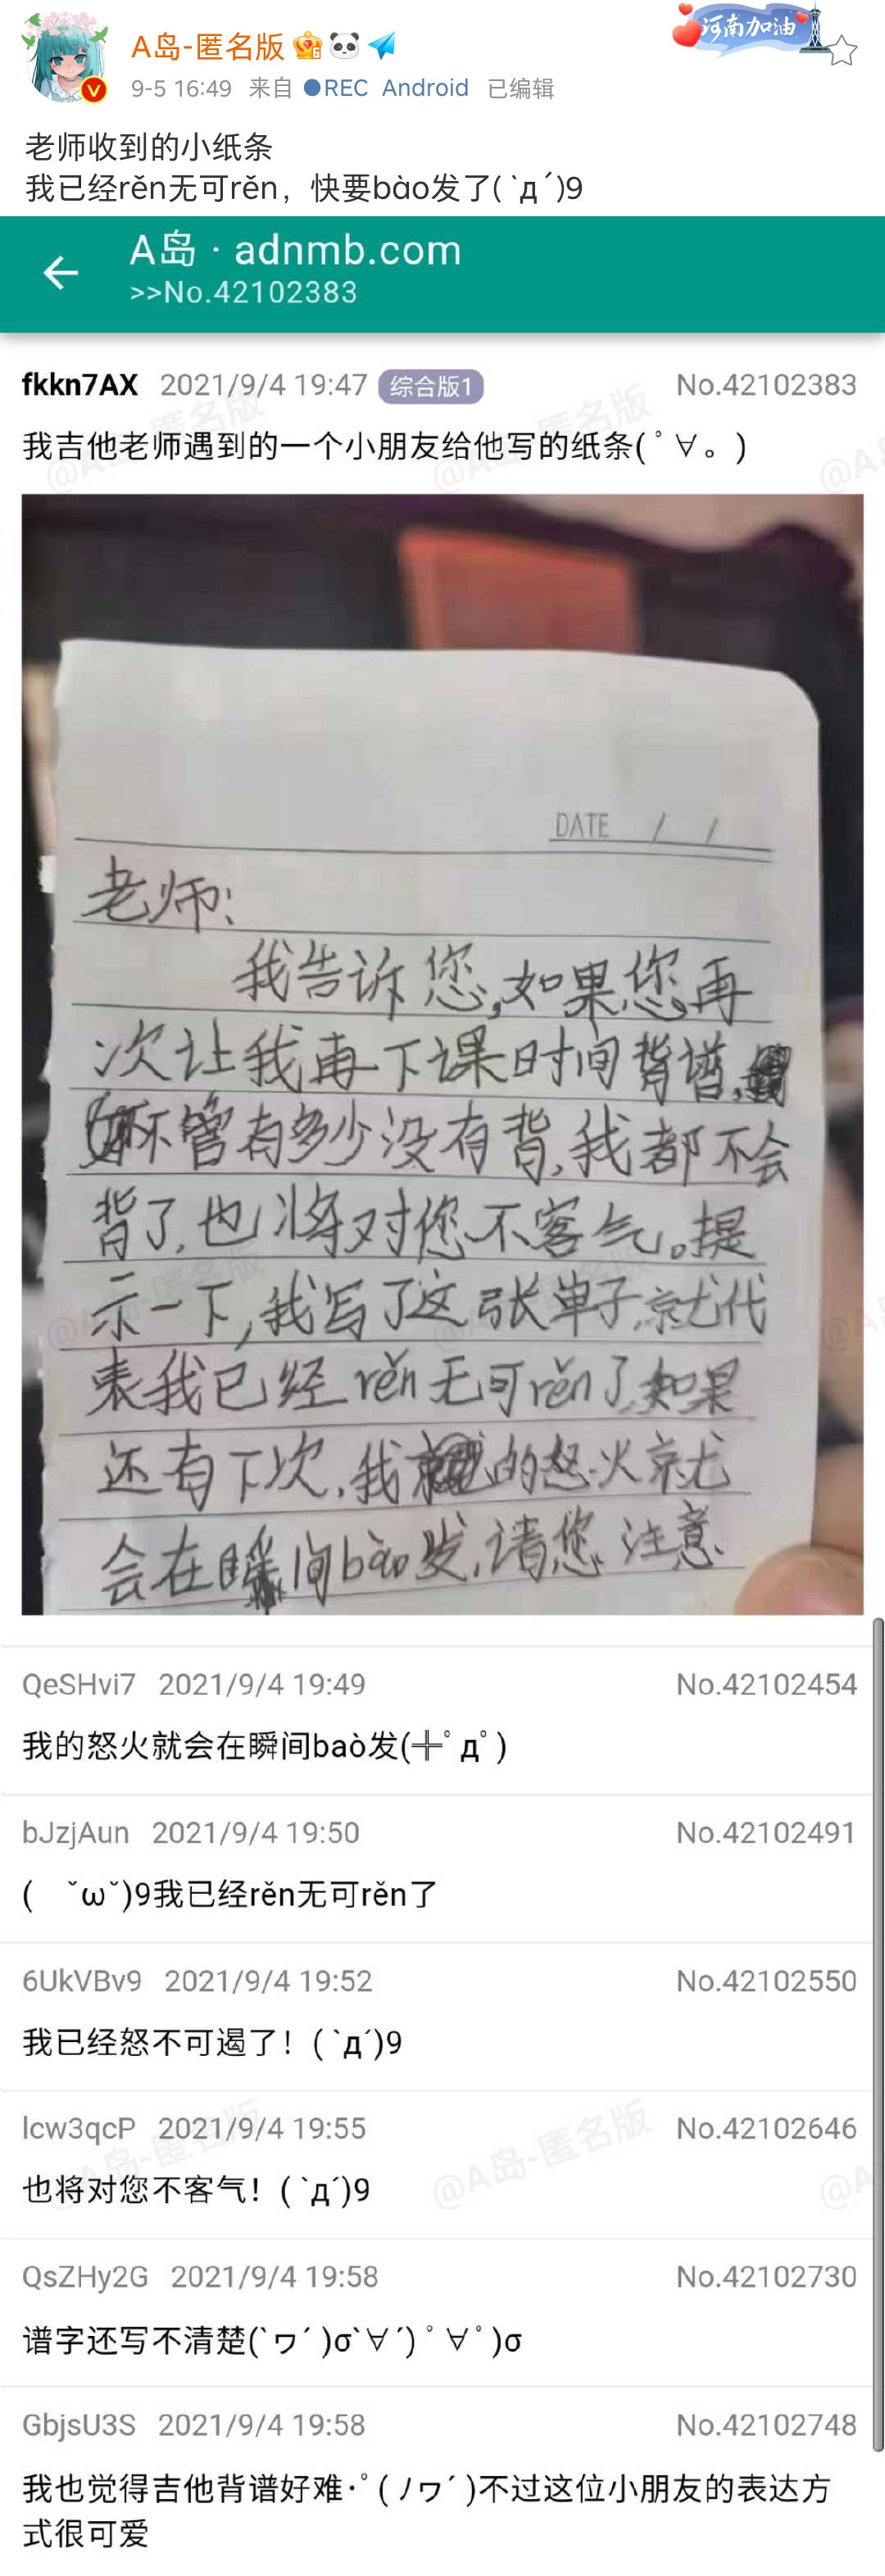 A岛-匿名版
河南加油
9-5 16:49 来自 REC Android 已编辑
老师收到的小纸条
我已经rěn无可rěn，快要bào发了( `д´)9
A岛 · adnmb.com
>>No.42102383
fkkn7AX 2021/9/4 19:47 综合版1 No.42102383
我吉他老师遇到的一个小朋友给他写的纸条( ﾟ∀。)
DATE / /
老师:
我告诉您,如果您再
次让我再下课时间背谱,
不管有多少没有背,我都不会
背了,也将对您不客气。提
示一下,我写了这张单子,就代
表我已经rěn无可rěn了,如果
还有下次,我的怒火就
会在瞬间bào发,请您注意
QeSHvi7 2021/9/4 19:49 No.42102454
我的怒火就会在瞬间baò发(╬ﾟдﾟ)
bJzjAun 2021/9/4 19:50 No.42102491
( ˇωˇ)9我已经rěn无可rěn了
6UkVBv9 2021/9/4 19:52 No.42102550
我已经怒不可遏了！( `д´)9
lcw3qcP 2021/9/4 19:55 No.42102646
也将对您不客气！( `д´)9
QsZHy2G 2021/9/4 19:58 No.42102730
谱字还写不清楚(`ヮ´ )σ`∀´) ﾟ∀ﾟ)σ
GbjsU3S 2021/9/4 19:58 No.42102748
我也觉得吉他背谱好难･ﾟ( ﾉヮ´ )不过这位小朋友的表达方
式很可爱
@A岛-匿名版